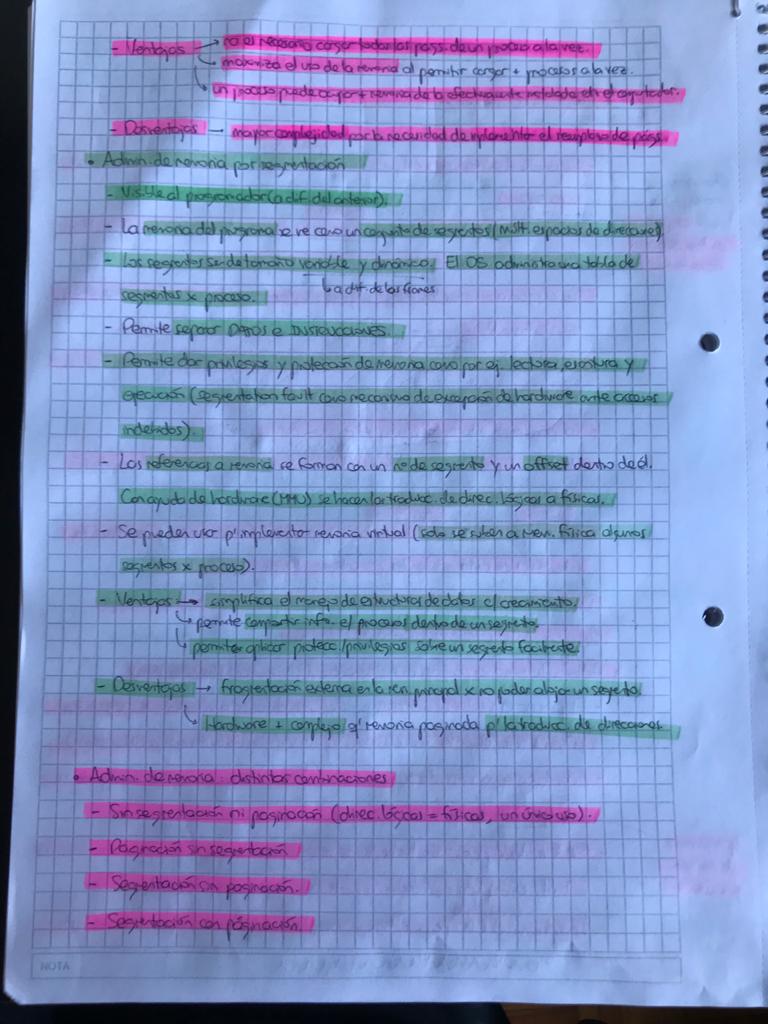 - Ventajas → no es necesario cargar todas las págs. de un proceso a la vez.
↳ maximiza el uso de la memoria al permitir cargar + procesos a la vez.
↳ un proceso puede ocupar + memoria de la efectivamente instalada en el computador.
- Desventajas → mayor complejidad por la necesidad de implementar el reemplazo de págs.
• Admin. de memoria por segmentación
- Visible al programador (a dif. del anterior).
- La memoria del programa se ve como un conjunto de segmentos (múlt. espacios de direcciones)
- Los segmentos son de tamaño variable y dinámico. El OS administra una tabla de
↳ a dif. de los frames
segmentos x proceso.
- Permite separar DATOS e INSTRUCCIONES.
- Permite dar privilegios y protección de memoria como por ej. lectura, escritura y
ejecución (segmentation fault como mecanismo de excepción de hardware ante accesos
indebidos).
- Las referencias a memoria se forman con un nº de segmento y un offset dentro de él.
Con ayuda de hardware (MMU) se hacen las traducc. de direc. lógicas a físicas.
- Se pueden usar p' implementar memoria virtual (solo se suben a mem. física algunos
segmentos x proceso).
- Ventajas → simplifica el manejo de estructuras de datos c/ crecimiento.
↳ permite compartir info. e/ procesos dentro de un segmento.
↳ permite aplicar protecc./privilegios sobre un segmento fácilmente
- Desventajas → fragmentación externa en la mem. principal x no poder alojar un segmento.
↳ Hardware + complejo q' memoria paginada p' la traducc. de direcciones.
• Admin. de memoria: distintas combinaciones
- Sin segmentación ni paginación (direc. lógicas = físicas, un único uso).
- Paginación sin segmentación
- Segmentación sin paginación.
- Segmentación con páginación
NOTA